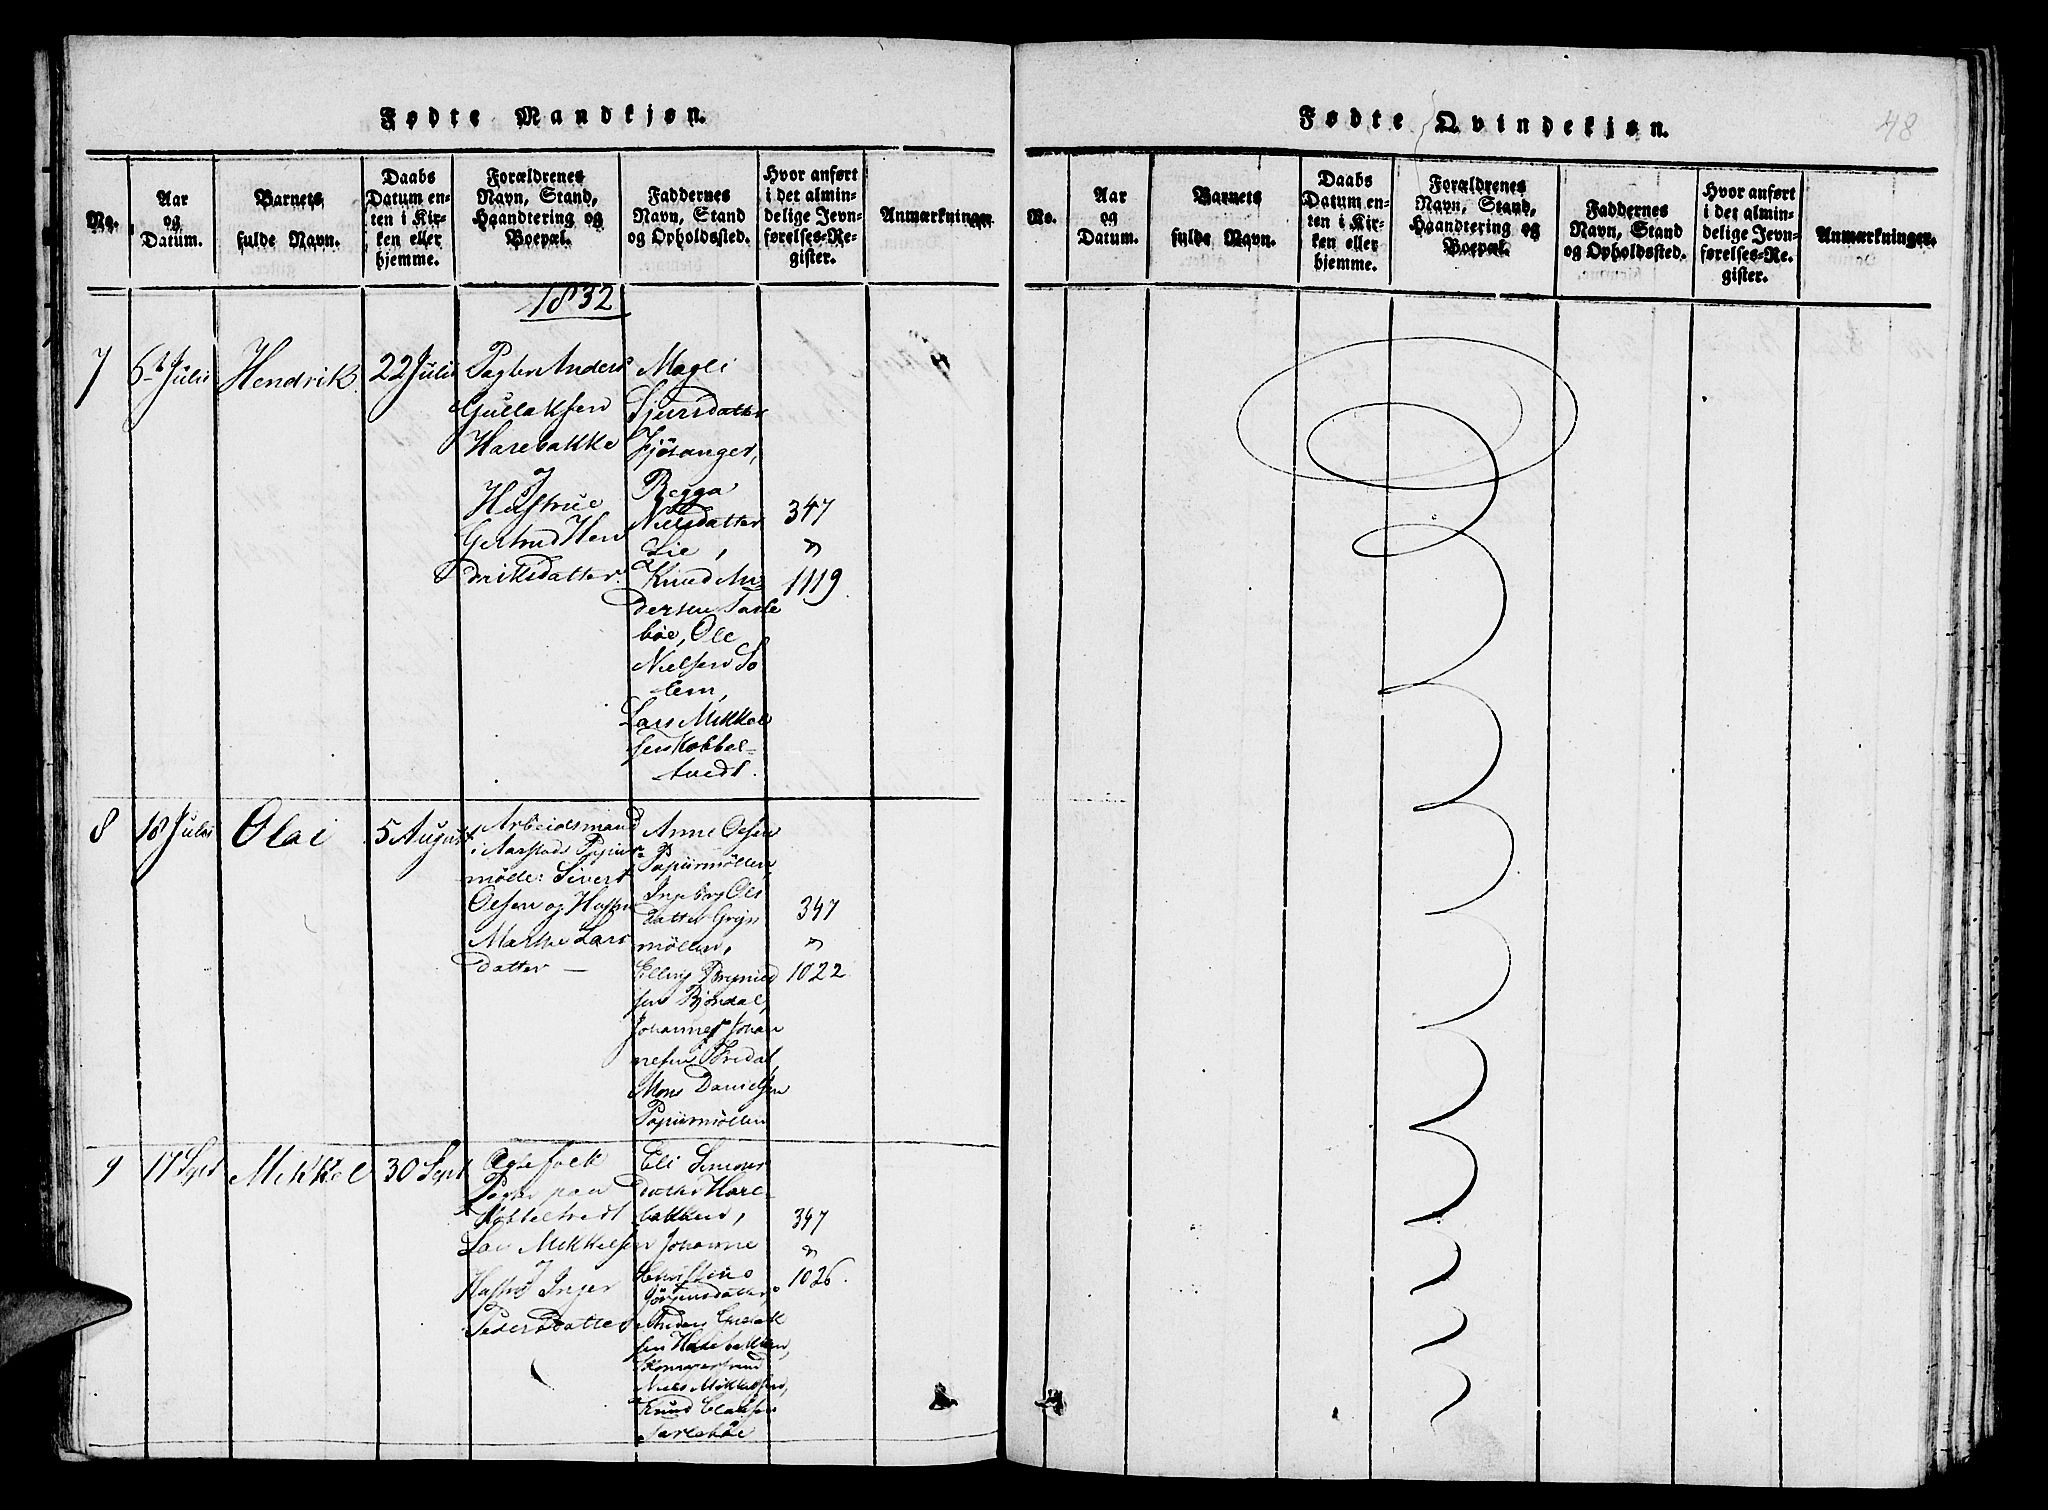 Fødte Mandkjøn.
No.
Aar
og
Datum.
Barnets
fulde Navn.
Daabs
Datum en-
ten i Kir-
ken eller
hjemme.
Forældrenes
Navn, Stand,
Haandtering og
Boepæl.
Faddernes
Navn, Stand
og Opholdssted.
Hvor anført
i det almin-
delige Jevn-
førelses-Re-
gister.
Anmærkninger
1832
7
6te Julii
Hendrik
22 Julii
Pagter Anders
Gullaksen
Harebakke
Hustrue
Gertrud Hen
driksdatter.
Magli
Sjursdatter
Fjösanger,
Begga
Nielsdatter
Lie,
Knud An
dersen Tarle
böe, Ole
Nielsen So
lem,
Lars Mikkel
sen Kobbel-
tvedt.
347
"
1119
8
18 Julii
Olai
5 August
Arbeidsmand
i Aarstads Papiir
mölle: Sivert
Olsen og Hustru
Marthe Lars
datter —
Anne Olsen
Papiirmöllen,
Ingeborg Ols
datter Gryn
möllen,
Elling Brynild
sen Björndal,
Johannes Johan
nesen Fredal,
Mons Danielsen
Papiirmöllen
347
"
1022
9
17 Sept
Mikkel
30 Sept
Ægtefolk
Pagter paa
Kobbeltvedt
Lars Mikkelsen
Hustru Inger
Pedersdatter
Eli Simons
datter Hare-
bakken,
Johanne
Christine
Jörgensdatter,
Anders Gullak
sen Harebakken,
Niels Mikkelsen,
Knud Claussen
Tarleböe
347
"
1026.
Fødte Qvindekjøn.
48
No.
Aar
og
Datum.
Barnets
fulde Navn.
Daabs
Datum en-
ten i Kir-
ken eller
hjemme.
Forældrenes
Navn, Stand,
Haandtering og
Boepæl.
Faddernes
Navn, Stand
og Opholdssted.
Hvor anført
i det almin-
delige Jevn-
førelses-Re-
gister.
Anmærkninger.